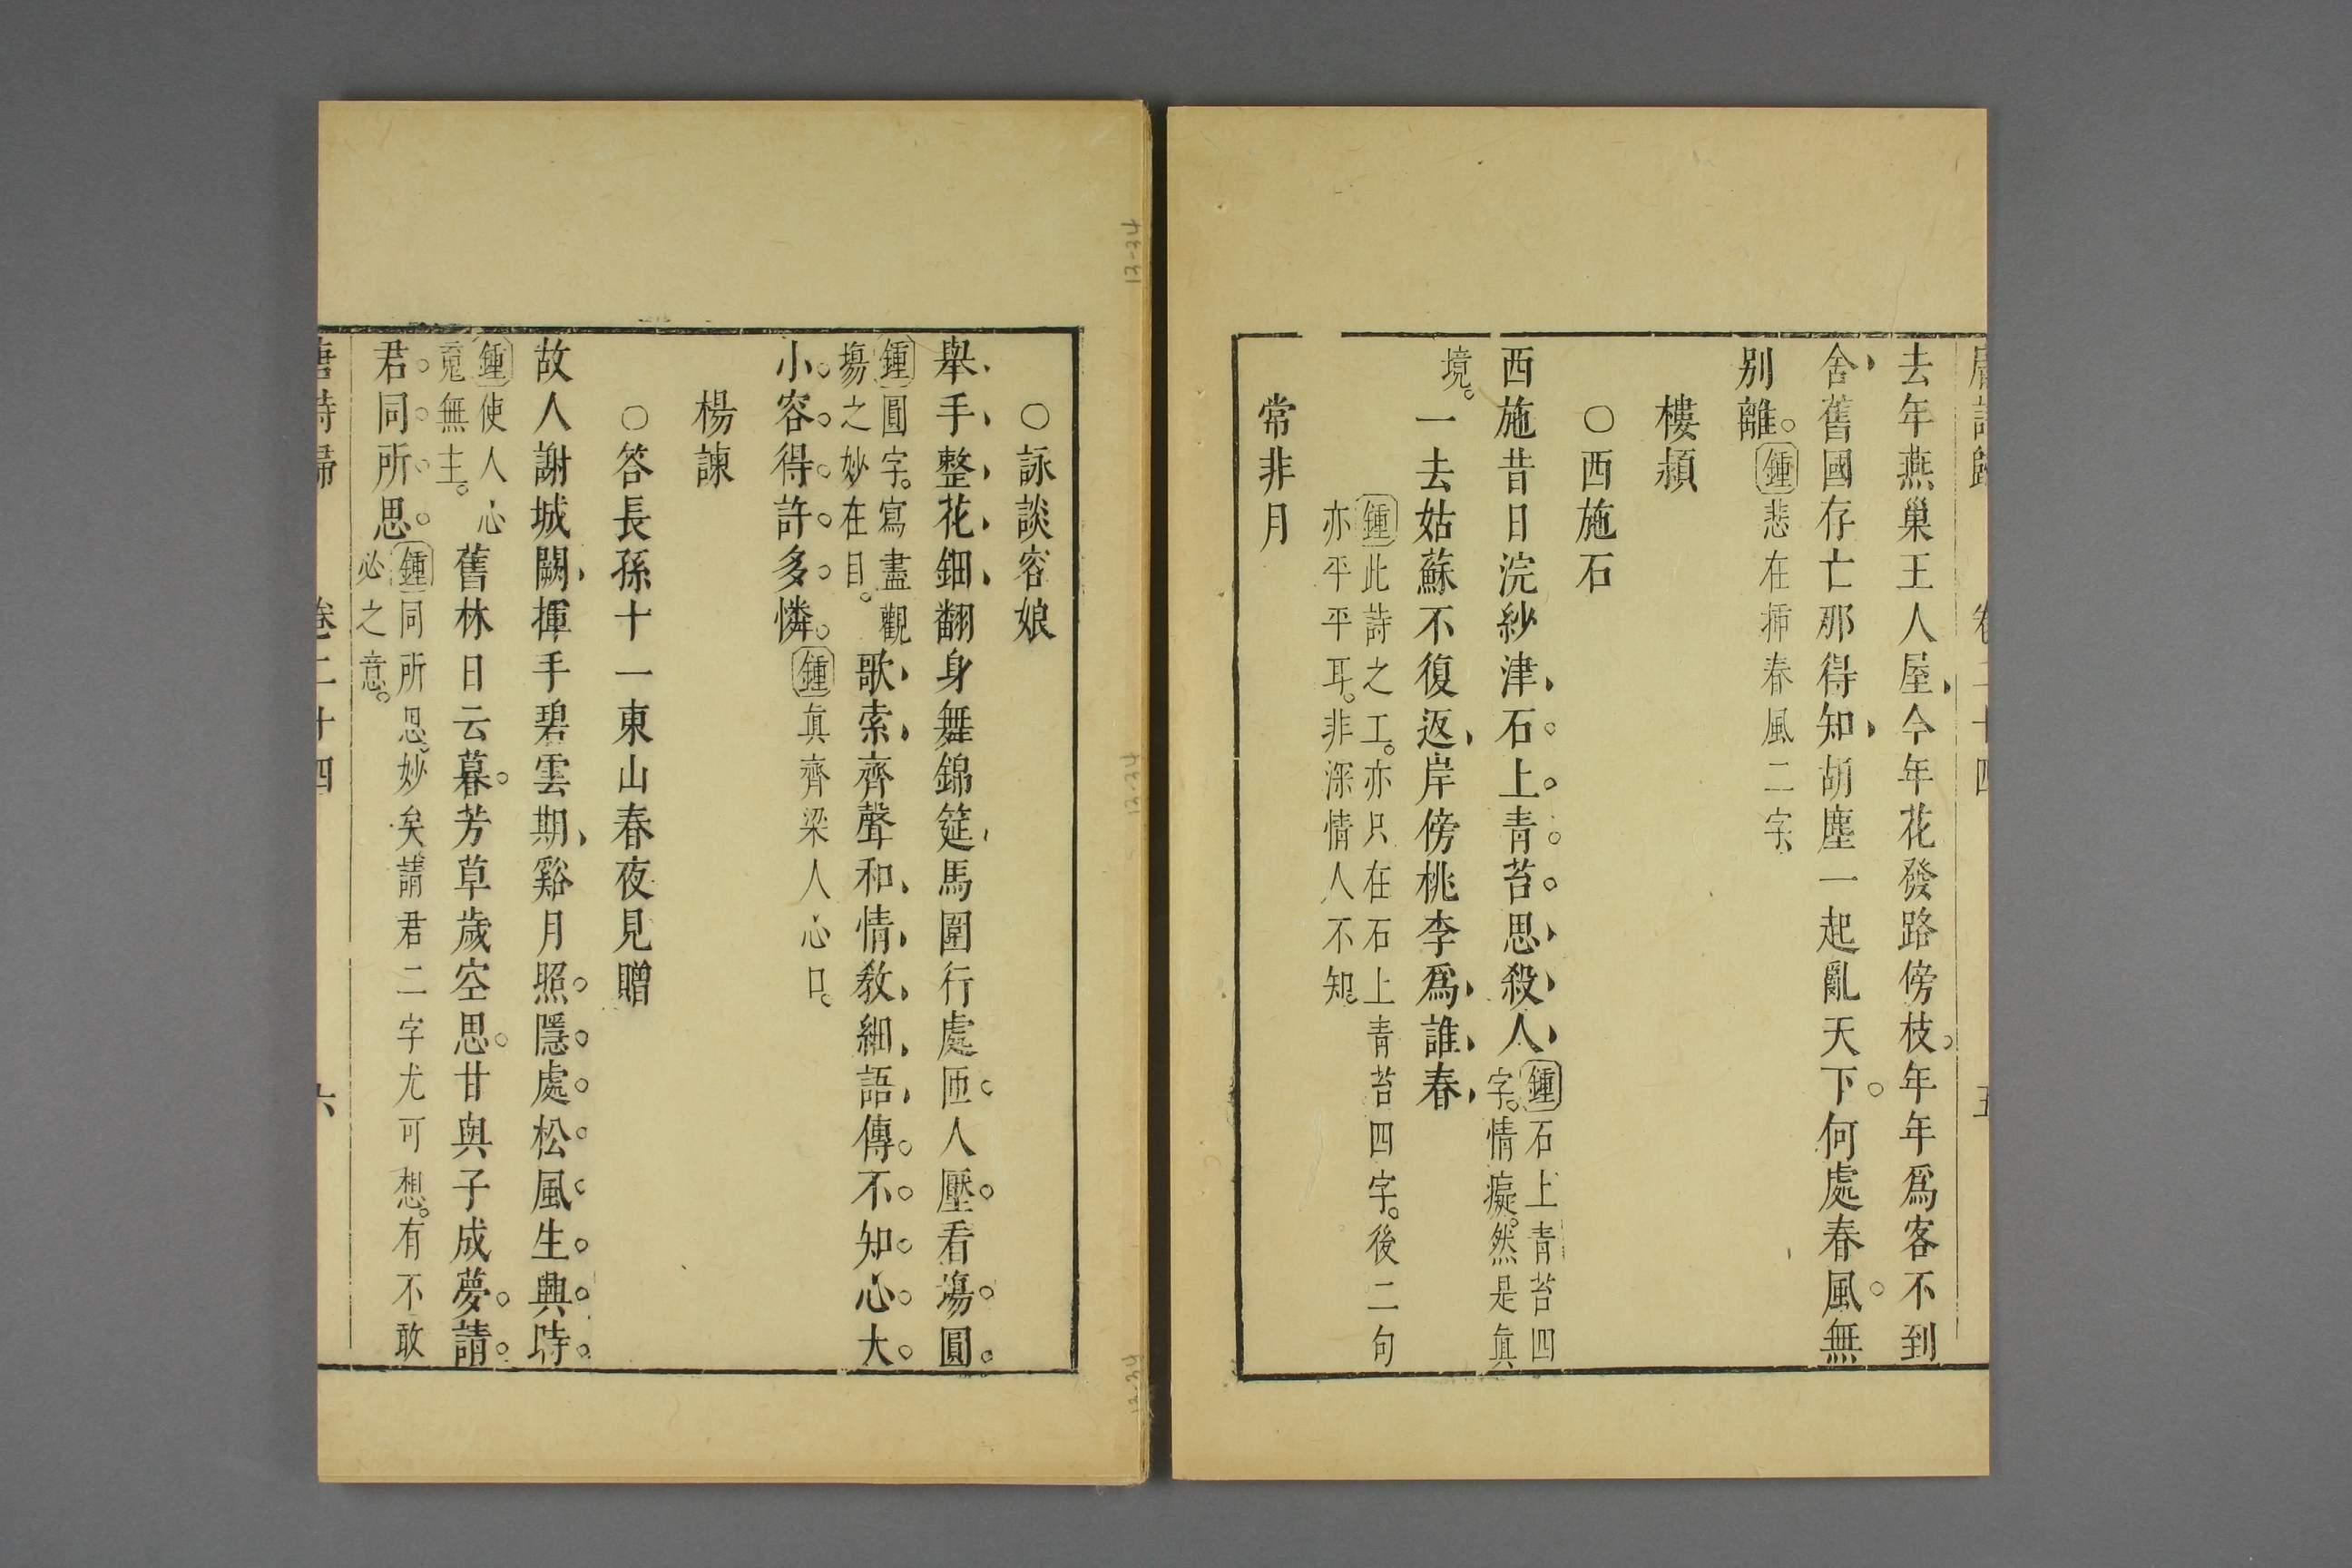 唐詩歸 卷二十四 五
去年燕巢王人屋今年花發路傍枝年年爲客不到
舍舊國存亡那得知胡塵一起亂天下何處春風無
别離鍾悲在揷春風二字
樓頴
○西施石
西施昔日浣紗津石上青苔思殺人鍾石上青苔四
字情癡然是眞
境一去姑蘇不復返岸傍桃李爲誰春
鍾此詩之工亦只在石上青苔四字後二句
亦平平耳非深情人不知
常非月
○詠談容娘
舉手整花鈿翻身舞錦筵馬圍行處匝人壓看塲圓
鍾圓字寫盡觀
塲之妙在目歌索齊聲和情教細語傳不知心大
小容得許多憐鍾眞齊梁人心口
楊諫
○答長孫十一東山春夜見贈
故人謝城闕揮手碧雲期谿月照隱處松風生興時
鍾使人心
䰟無主舊林日云暮芳草歲空思甘與子成夢請
君同所思鍾同所思妙矣請君二字尤可想有不敢
必之意
唐詩歸 卷二十四 六